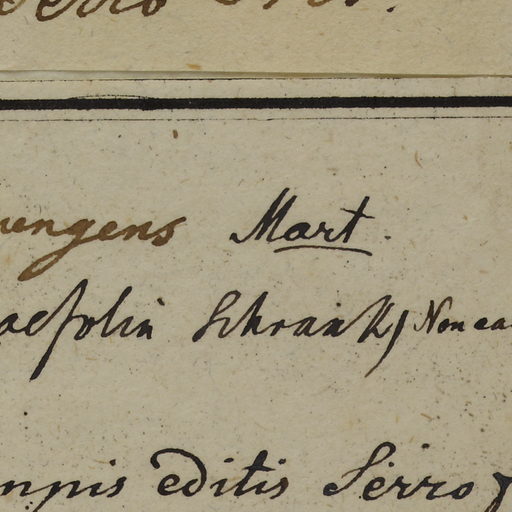 Serro
ungens Mart.
aefolia Schrank) Non ea
mpis editis Serro